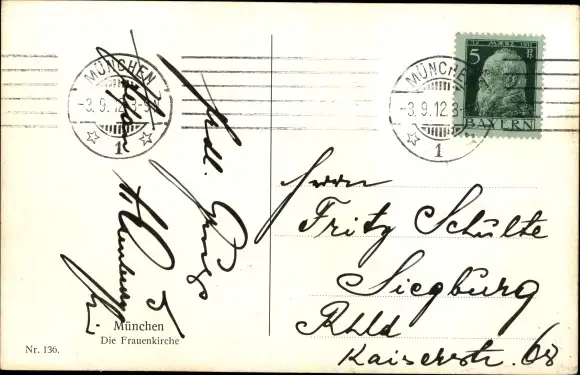 MÜNCHEN
-3.9.12.8-9
1
MÜNCHEN
-3.9.12.8
1
5
BAYERN
Herrn
Fritz Schulte
Siegburg
Rhld
Kaiserstr. 68
München
Die Frauenkirche
Nr. 136.